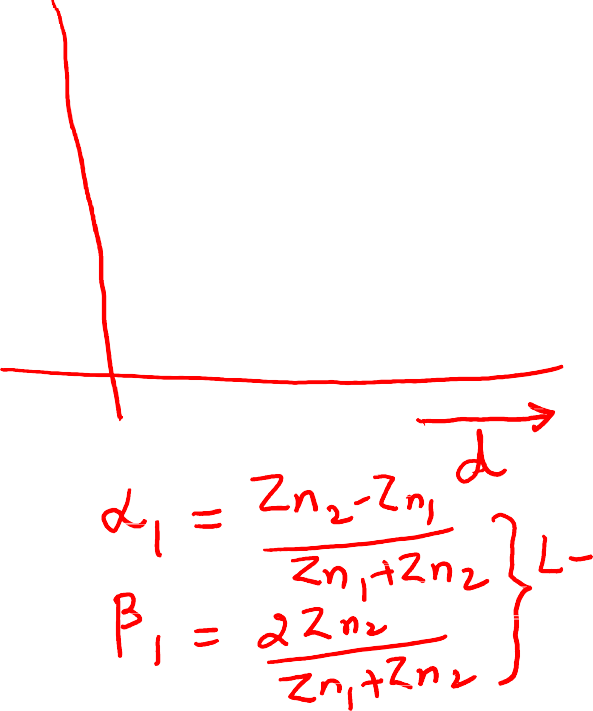 d
α₁ = (Zn₂-Zn₁)/(Zn₁+Zn₂) } L-
β₁ = (2Zn₂)/(Zn₁+Zn₂)